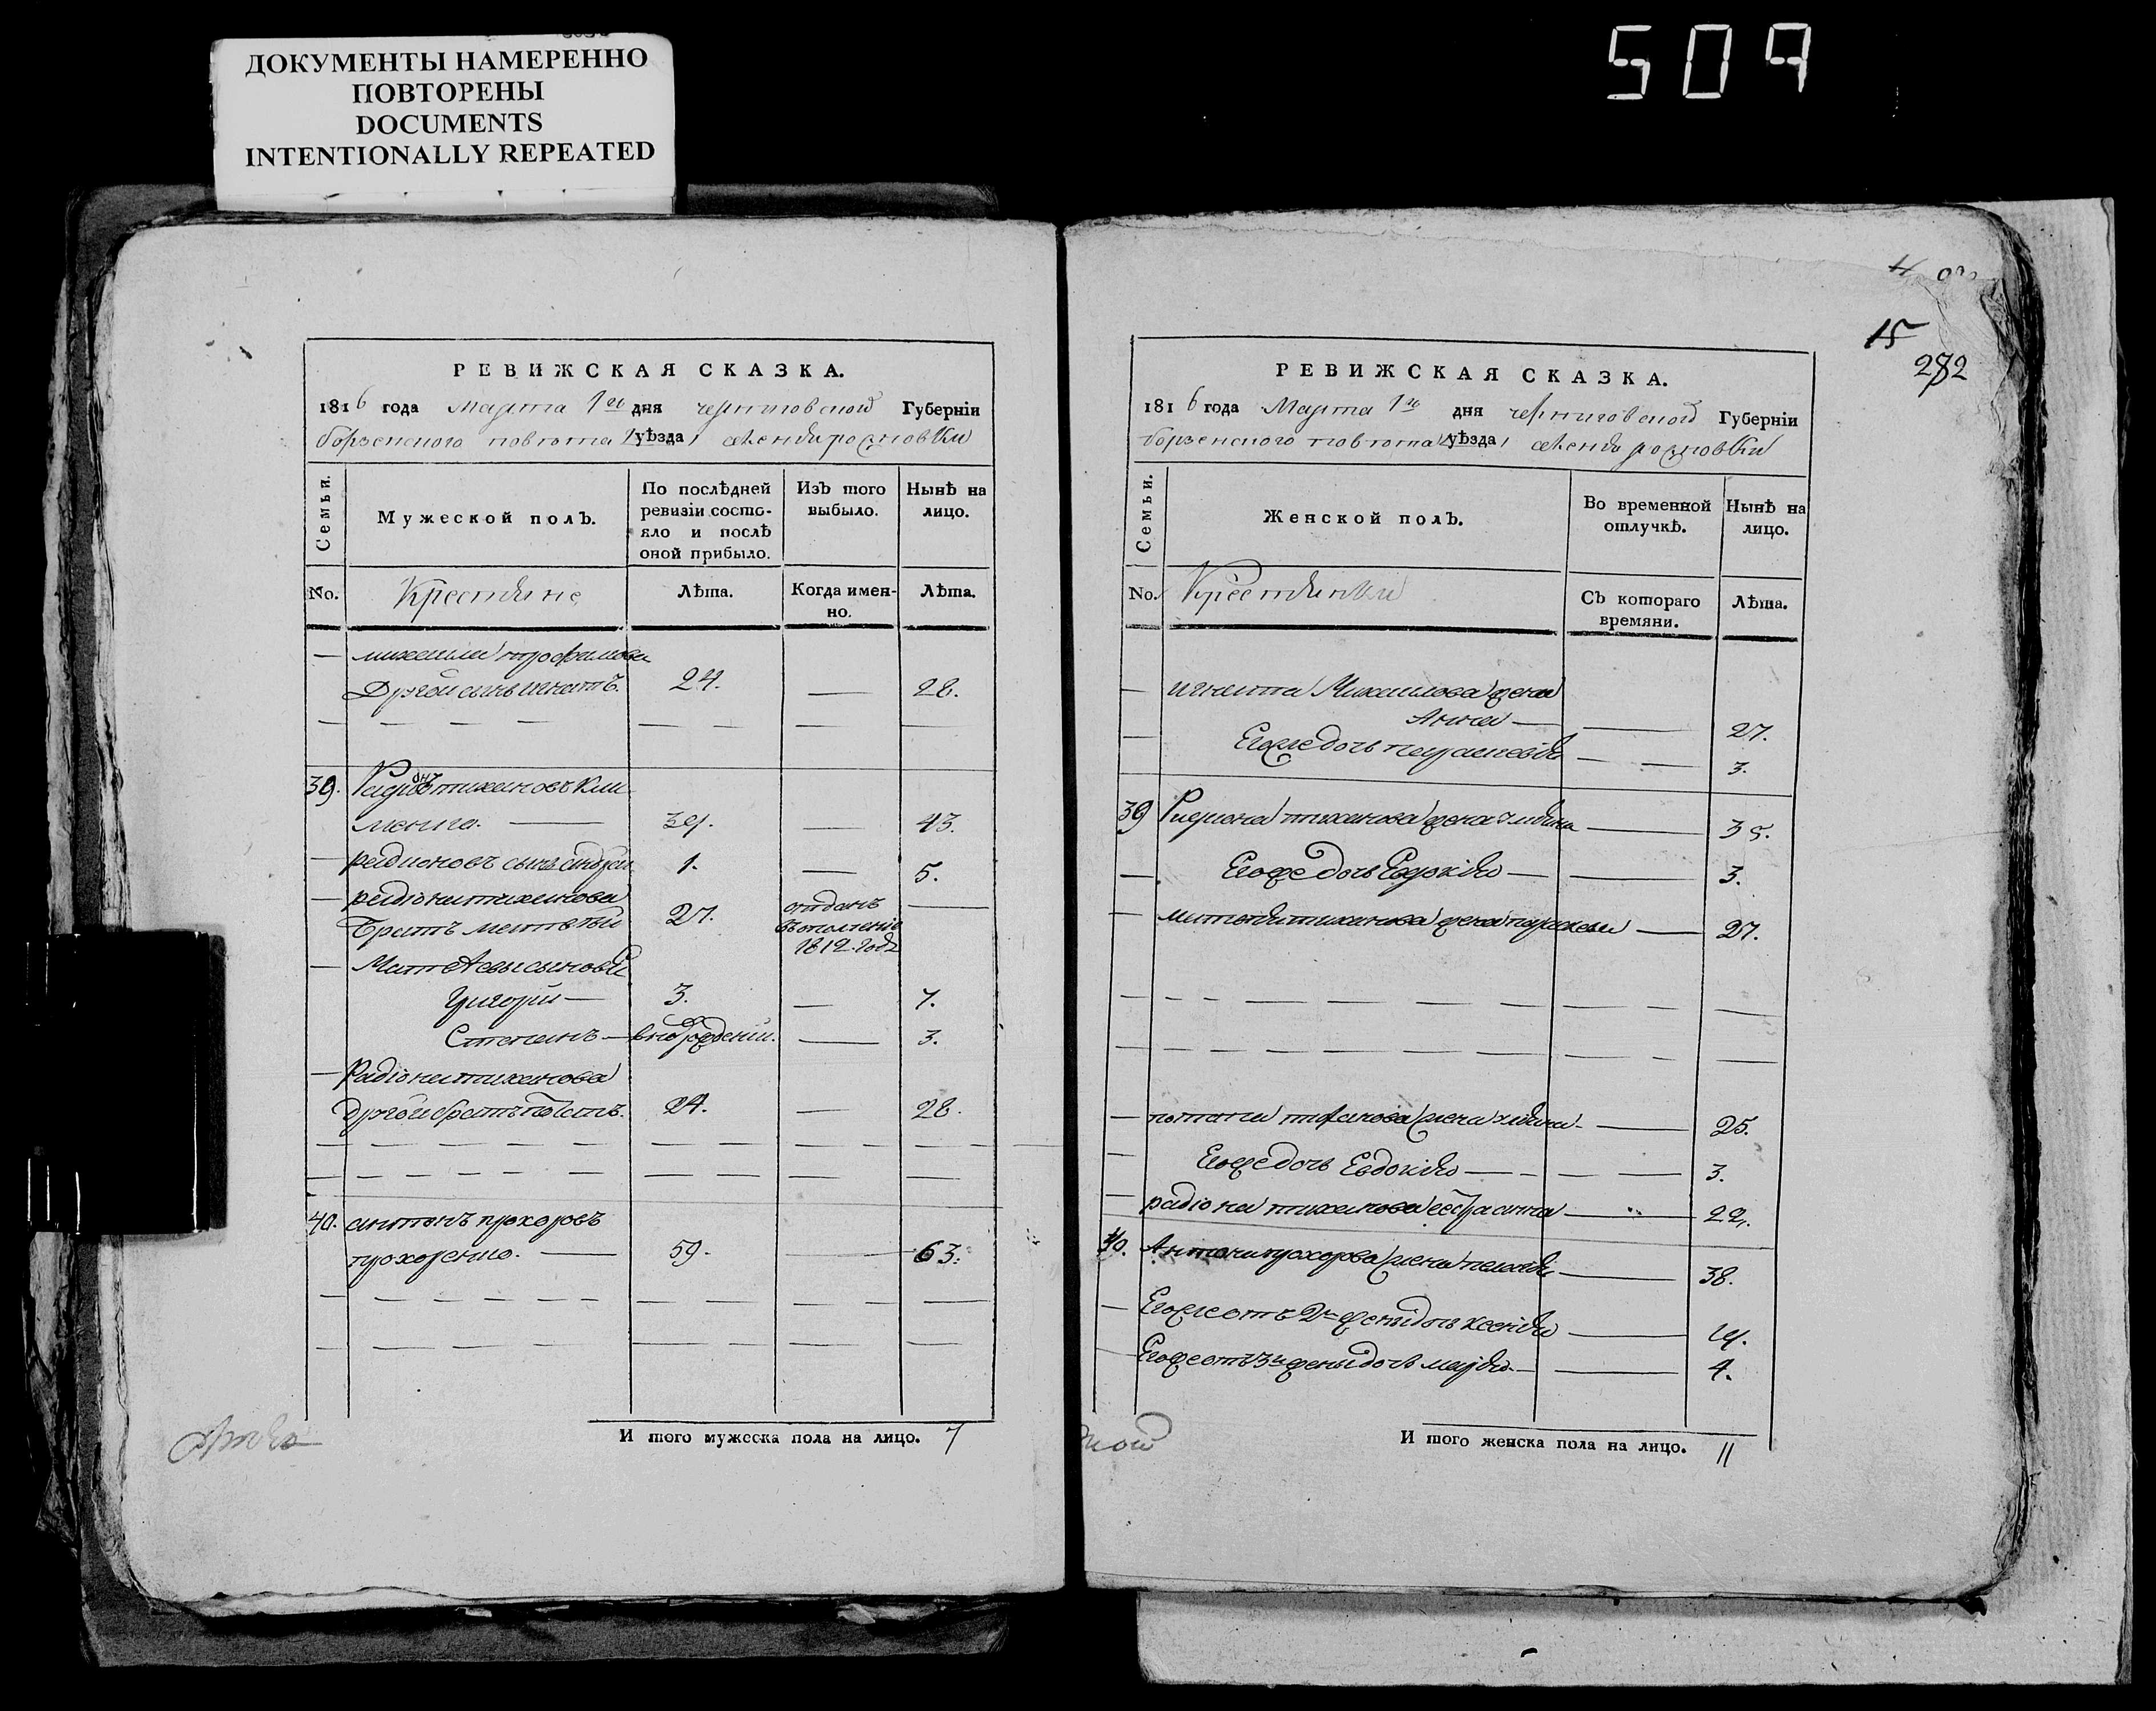 509
ДОКУМЕНТЫ НАМЕРЕННО
ПОВТОРЕНЫ
DOCUMENTS
INTENTIONALLY REPEATED
РЕВИЖСКАЯ СКАЗКА.
1816 года Марта 1го дня черниговской Губерніи
борзенского повѣта уѣзда
Семьи.
Мужеской полъ.
По послѣдней ревизіи состояло и послѣ оной прибыло.
Изъ того выбыло.
Нынѣ на лицо.
No.
Крестяне
Лѣта.
Когда именно.
Лѣта.
— михаила трофимова
Другой сынъ игнатъ. 24. — 28.
39. Радіонъ тихановъ Кли
менко. — 39. — 43.
— радионовъ сынъ андрей 1. — 5.
— радіона тиханова
Братъ матвѣй 27. отданъ въ ополченіе 1812. года —
— Матвѣевы сыновья
Григорій — 3. — 7.
Степанъ — вновьрожденный. — 3.
— Радіона тиханова
другой братъ потапъ. 24. — 28.
40. антонъ прохоровъ
прохоренко. — 59. — 63.
И того мужеска пола на лицо. 7
15
282
РЕВИЖСКАЯ СКАЗКА.
1816 года Марта 1го дня черниговской Губерніи
борзенского повѣта уѣзда
Семьи.
Женской полъ.
Во временной отлучкѣ.
Нынѣ на лицо.
No.
Крестянки
Съ котораго времяни.
Лѣта.
— игната Михаилова жена
Анна — — 27.
— Егоже дочь — — 3.
39 Радиона тиханова жена — 35.
— Егоже дочь Евдокія — — 3.
— матвѣя тиханова жена параскева — 27.
— потапа тиханова жена — 25.
— Егоже дочь Евдокія — — — 3.
— радіона тиханова сестра анна — 22.
40. Антона прохорова жена пелагея — 38.
— Егоже отъ 2й жены дочь ксенія — 19.
— Егоже отъ 3й жены дочь марья — — 4.
И того женска пола на лицо. 11